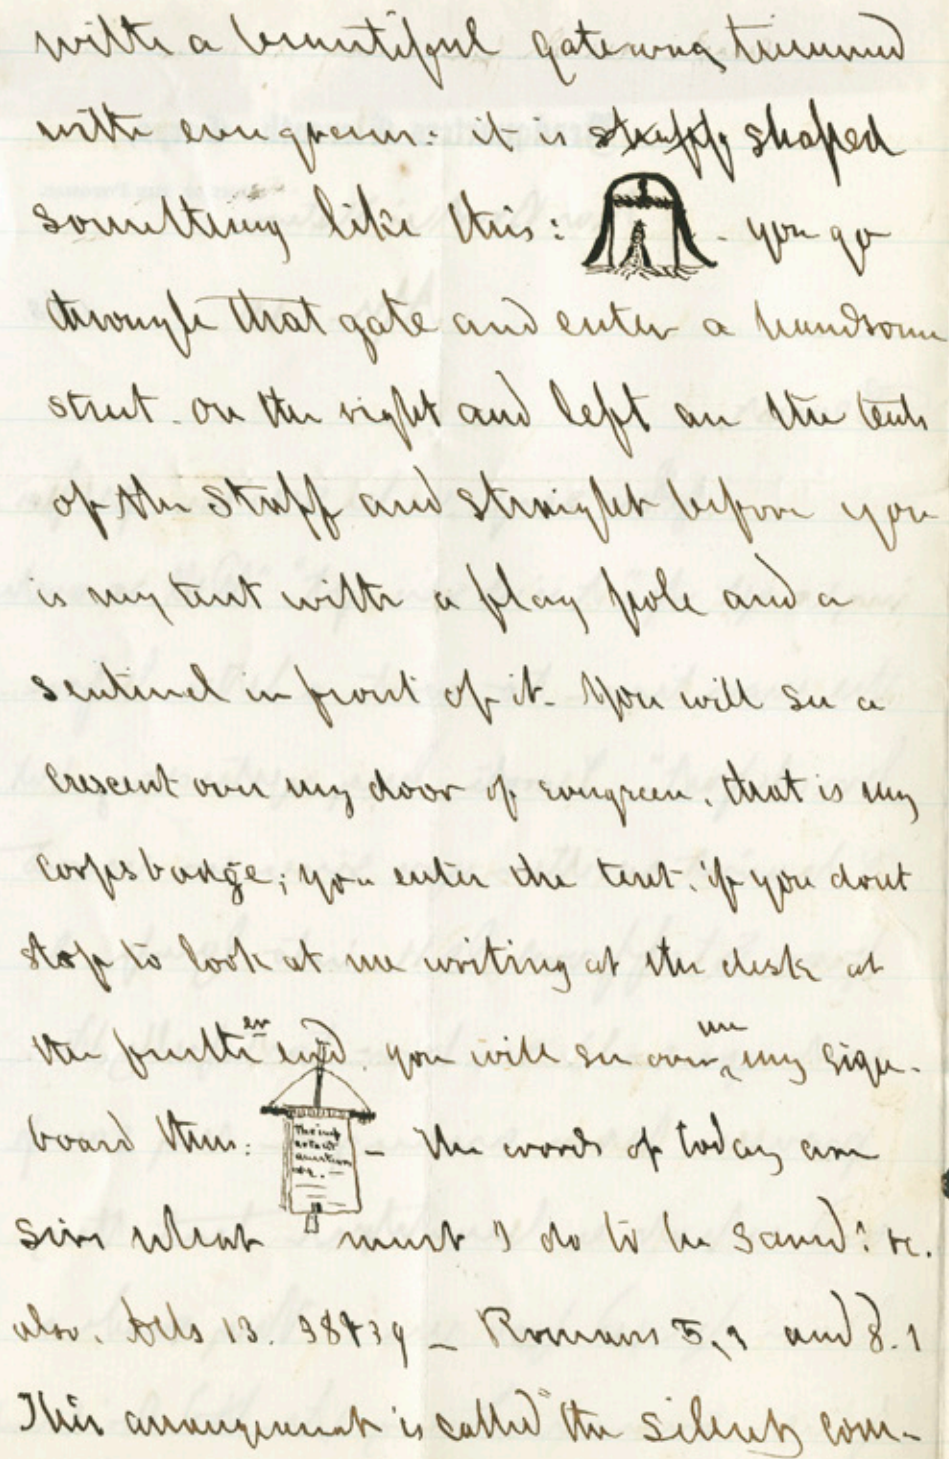 with a beautiful gateway trimmed
with evergreens: it is shaped
something like this: you go
through that gate and enter a handsome
street. On the right and left are the tents
of the staff and straight before you
is my tent with a flag pole and a
sentinel in front of it. You will see a
crescent over my door of evergreen, that is my
corps badge; you enter the tent, if you dont
stop to look at me writing at the desk at
the further end, you will see over me my sign-
board thus: - The words of today are
Sirs what must I do to be saved? &c.
also. Acts 13. 38 & 39 - Romans 5,1 and 8.1
This arrangement is called "the Silent Com-